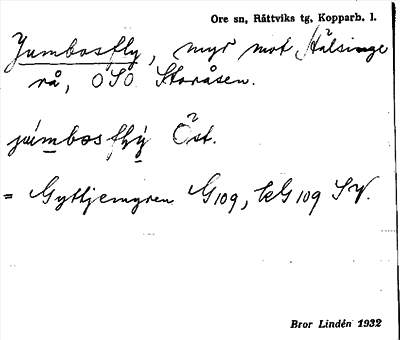 Ore sn, Rättviks tg, Kopparb. l.
Jumbosfly, myr mot Hälsinge
rå, OSO Storåsen.
júmbosflý Öst.
= Gyttjemyren G109, bG109 SV.
Bror Lindén 1932